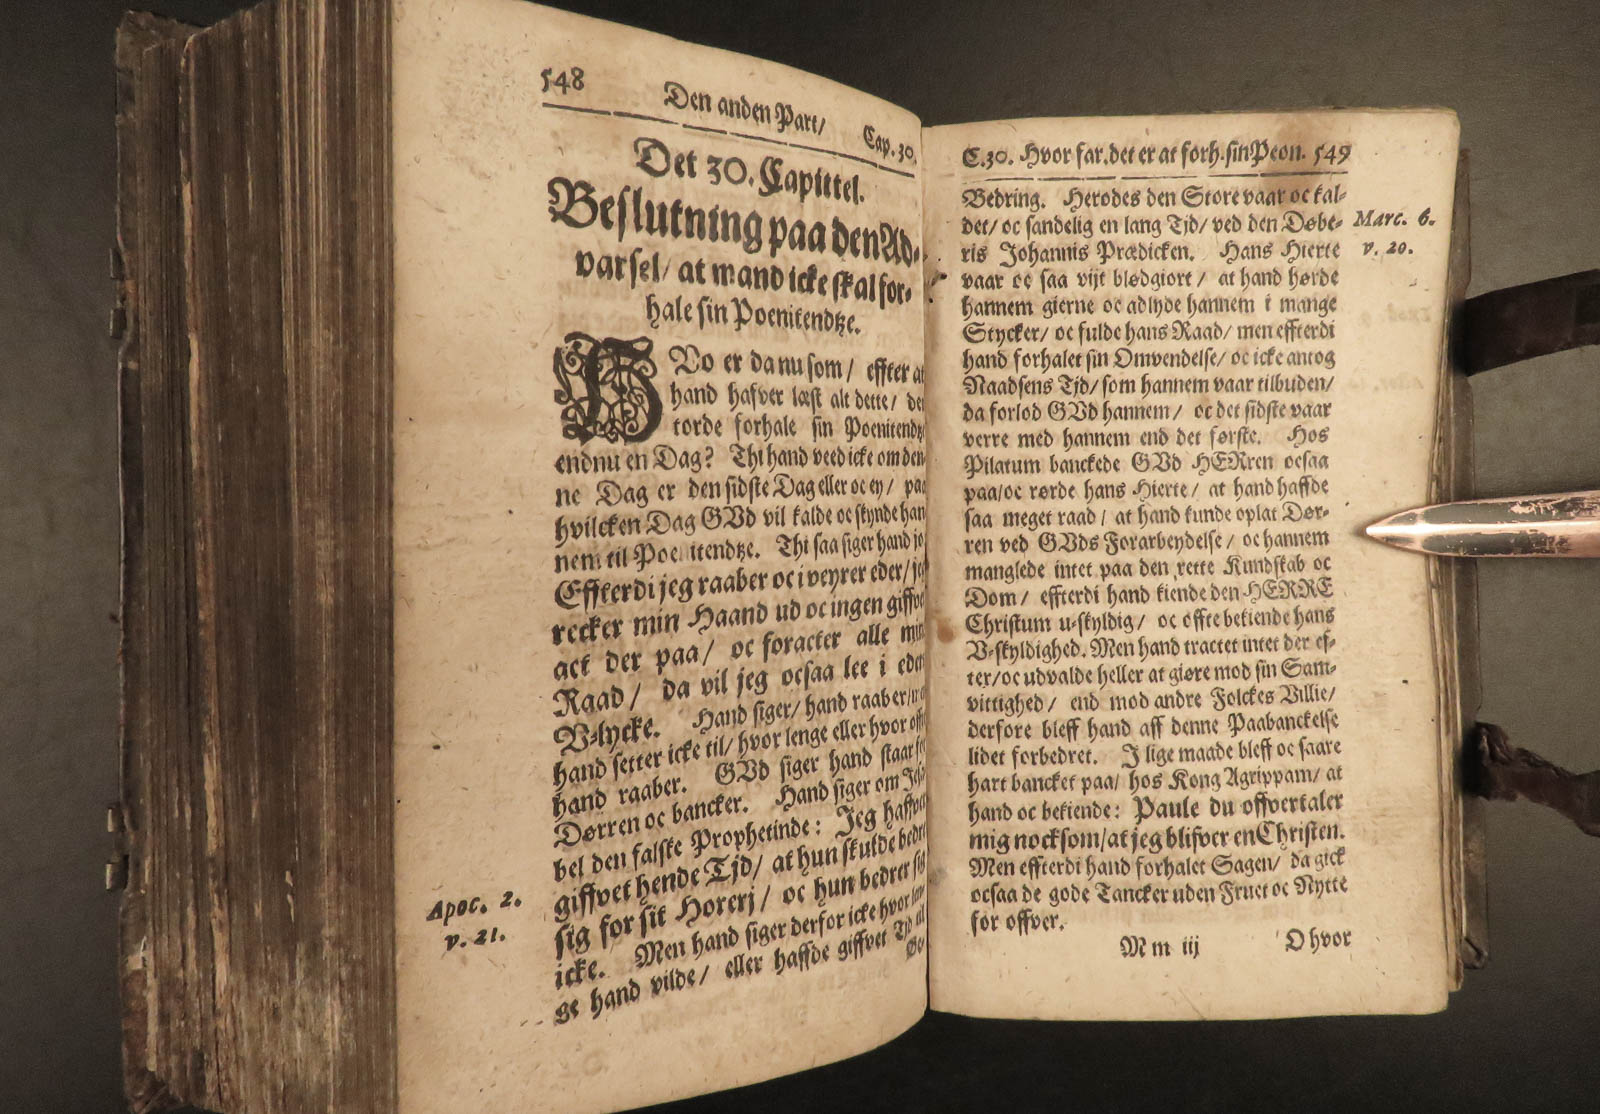 548 Den anden Part/ Cap. 30.
Det 30. Capittel.
Beslutning paa den Ad-
varsel/ at mand icke skal for-
hale sin Poenitendtze.
HVo er da nu som/ effter at
hand hafver læst alt dette/
torde forhale sin Poenitendtz
endnu en Dag? Thi hand veed icke om den
ne Dag er den sidste Dag eller oc ey/ paa
hvilcken Dag GVd vil kalde oc skynde han
nem til Poenitendtze. Thi saa siger hand jo
Effterdi jeg raaber oc i veyrer eder/ jeg
recker min Haand ud oc ingen giffve
act der paa/ oc foracter alle min
Raad/ da vil jeg ocsaa lee i eders
V-lycke. Hand siger/ hand raaber/
hand setter icke til/ hvor lenge eller hvor offte
hand raaber. GVd siger hand staar for
Dørren oc bancker. Hand siger om Jesa
bel den falske Prophetinde: Jeg haffver
giffvet hende Tjd/ at hun skulde bedre
sig for sit Horerj/ oc hun bedrer sig
icke. Men hand siger derfor icke hvor
ge hand vilde/ eller haffde giffvet Tjd til
Apoc. 2.
v. 21.
C.30. Hvor far. det er at forh. sin Peon. 549
Bedring. Herodes den Store vaar oc kal-
det/ oc sandelig en lang Tjd/ ved den Døbe-
ris Johannis Prædicken. Hans Hierte
vaar oc saa vijt blødgiort/ at hand hørde
hannem gierne oc adlyde hannem i mange
Stycker/ oc fulde hans Raad/ men effterdi
hand forhalet sin Omvendelse/ oc icke antog
Naadsens Tjd/ som hannem vaar tilbuden/
da forlod GVd hannem/ oc det sidste vaar
verre med hannem end det første. Hos
Pilatum banckede GVd HERren ocsaa
paa/ oc rørde hans Hierte/ at hand haffde
saa meget raad/ at hand kunde oplat Dør-
ren ved GVds Forarbeydelse/ oc hannem
manglede intet paa den rette Kundskab oc
Dom/ effterdi hand kiende den HERRE
Christum u-skyldig/ oc offte bekiende hans
V-skyldighed. Men hand tractet intet der ef-
ter/ oc udvalde heller at giøre mod sin Sam-
vittighed/ end mod andre Folckes Villie/
derfore bleff hand aff denne Paabanckelse
lidet forbedret. I lige maade bleff oc saare
hart bancket paa/ hos Kong Agrippam/ at
hand oc bekiende: Paule du offvertaler
mig nocksom/ at jeg blifver en Christen.
Men effterdi hand forhalet Sagen/ da gick
ocsaa de gode Tancker uden Fruct oc Nytte
for offver.
Marc. 6.
v. 20.
Mm iij O hvor